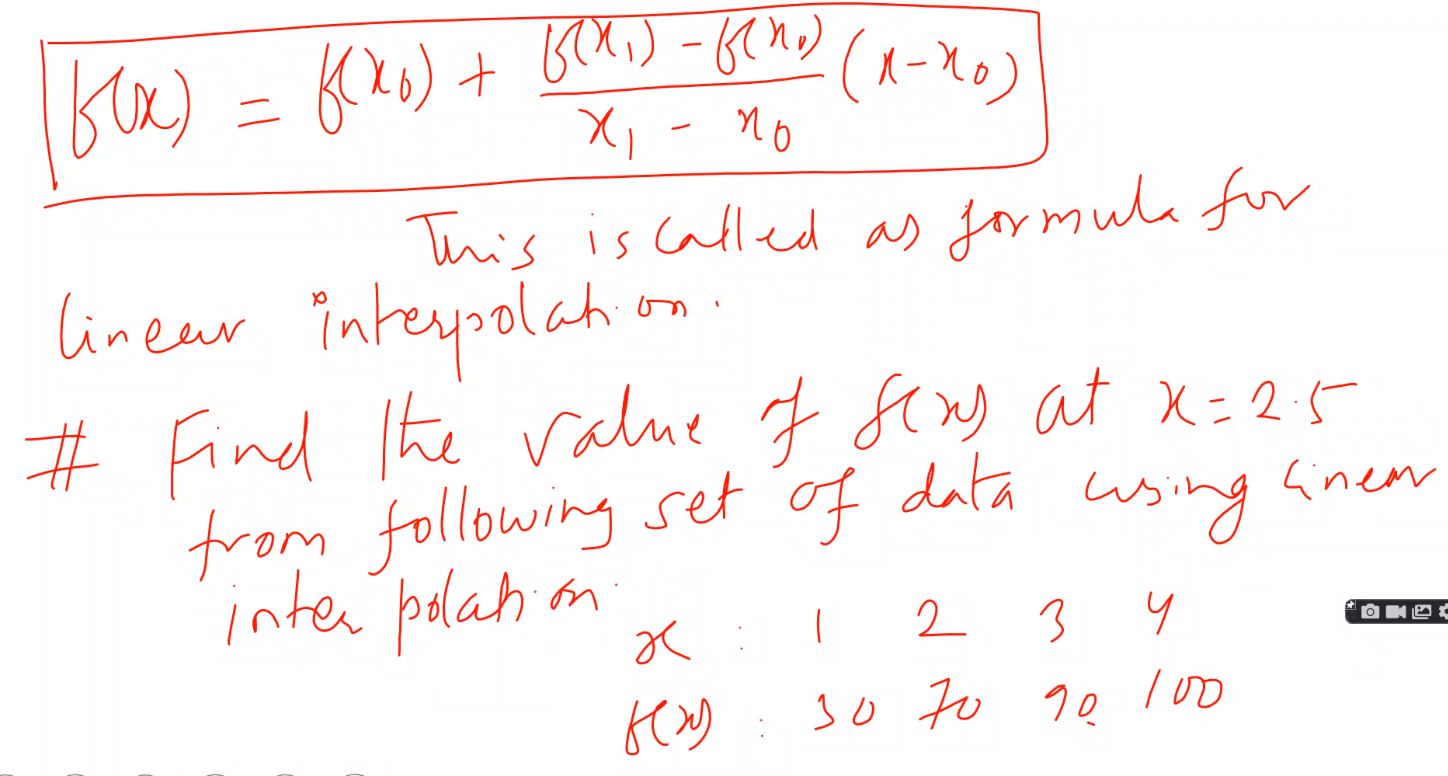 f(x) = f(x₀) + f(x₁) - f(x₀) / x₁ - x₀ (x-x₀)
This is called as formula for
linear interpolation.
# Find the value of f(x) at x=2.5
from following set of data using linear
interpolation.
x : 1 2 3 4
f(x) : 30 70 90 100